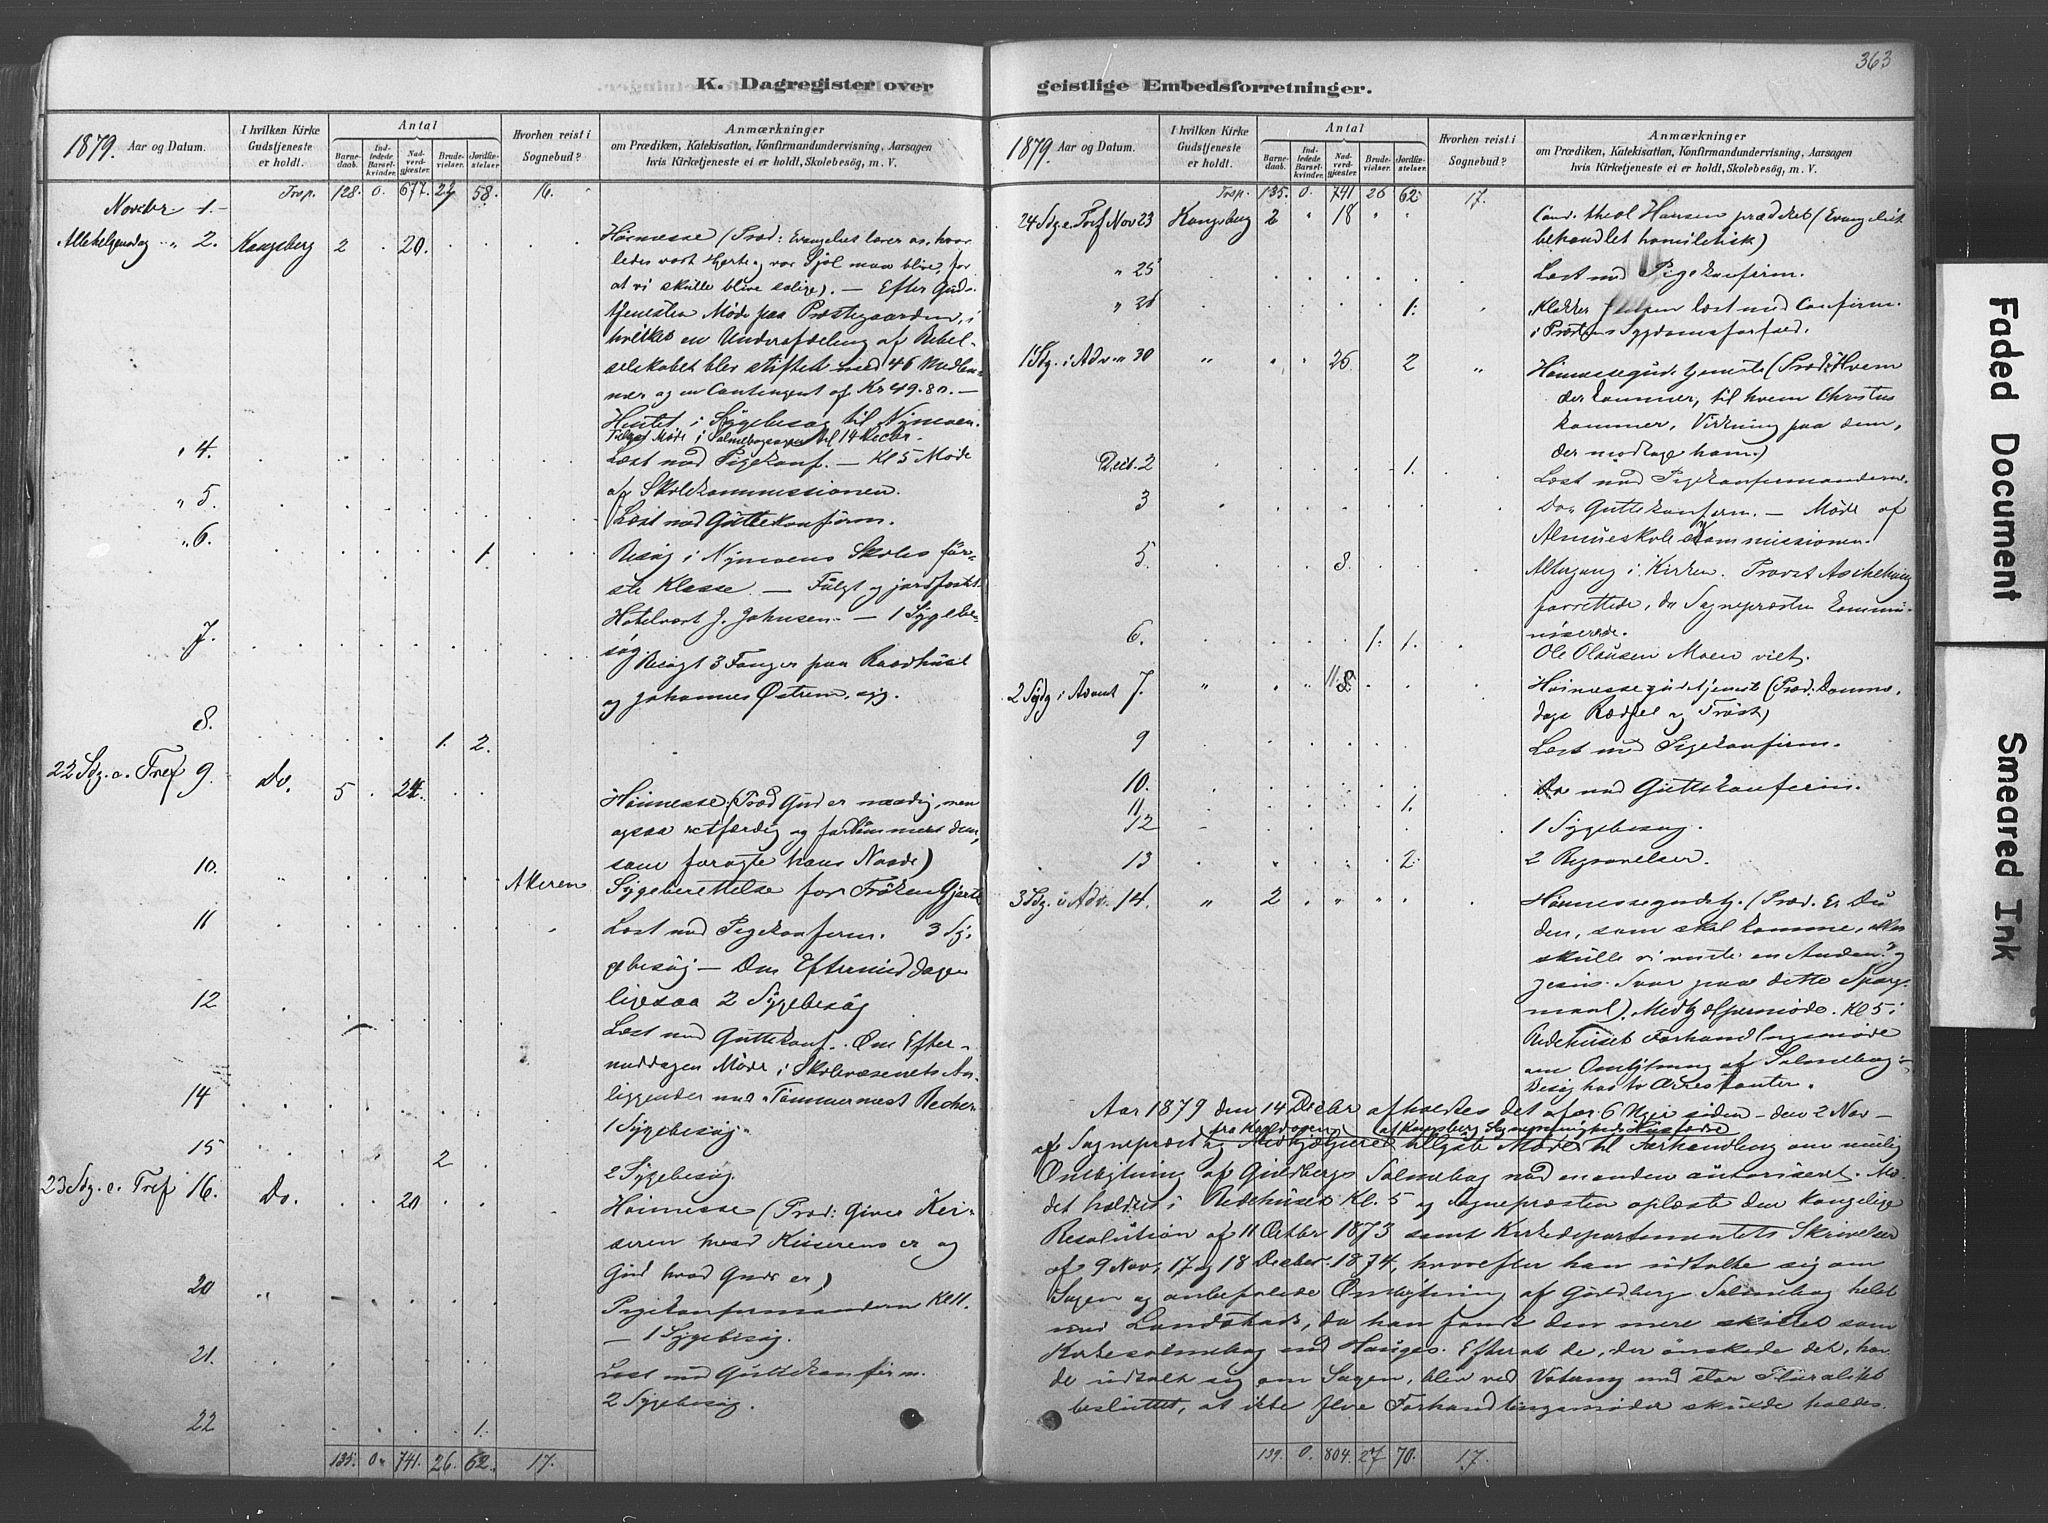 363
K. Dagregister over
geistlige Embedsforretninger.
1879. Aar og Datum.
I hvilken Kirke Gudstjeneste er holdt.
Antal
Barnedaab.
Indledede Barselkvinder.
Nadverdgjæster.
Brudevielser.
Jordfæstelser.
Hvorhen reist i Sognebud?
Anmærkninger
om Prædiken, Katekisation, Konfirmandundervisning, Aarsagen
hvis Kirketjeneste ei er holdt, Skolebesøg, m. V.
Trsp. 128. 0. 677. 22 58. 16.
Novcbr 1.
Allehelgensdag " 2. Kongsberg 2 . 20.
Høimesse (Præd: Evangeliet lærer os, hvor
ledes vort Hjerte og vor Sjæl maa blive, for
at vi skulle blive salige). — Efter Guds-
tjenesten Møde paa Præstegaarden, i
hvilket en Underafdeling af Bibel-
selskabet blev stiftet med 46 Medlem-
mer og en Contingent af Kr 49.80. —
Hentet i Sygebesøg til Nymoen.
" 4.
Læst med Pigekonf. — Kl 5 Møde
af Skolekommissionen.
" 5.
Læst med Guttekonfirm.
" 6. 1.
Besøg i Nymoens Skoles før-
ste Klasse. — Fulgt og jordfæstet
Hotelvært J. Johnsen. — 1 Sygebe-
søg
7.
Besøgt 3 Fanger paa Raadhuset
og Johannes Østrem, syg.
8. 1. 2.
22 Sdg. e. Tref 9. Do. 5 . 24.
Høimesse. (Præd Gud er naadig, men
ogsaa retfærdig og fordømmer dem,
som foragte hans Naade)
10. Akeren
Sygeberettelse for Frøken Gjert
11
Læst med Pigekonfirm. 3 Sy-
gebesøg — Om Eftermiddagen
ligesaa 2 Sygebesøg
12
Læst med Guttekonf. Om Efter-
middagen Møde i Skolevæsenets An-
liggender
14
1 Sygebesøg.
15 2
2 Sygebesøg.
23 Sdg. e. Tref 16. Do. . . 20
Høimesse (Præd: Giver Kei-
seren hvad Keiserens er og
Gud hvad Guds er)
20 "
Pigekonfirmanderne Kl 11.
— 1 Sygebesøg.
21.
Læst med Guttekonfirm.
2 Sygebesøg.
22 1.
135. 0. 741. 26. 62. 17.
1879. Aar og Datum.
I hvilken Kirke Gudstjeneste er holdt.
Antal
Barnedaab.
Indledede Barselkvinder.
Nadverdgjæster.
Brudevielser.
Jordfæstelser.
Hvorhen reist i Sognebud?
Anmærkninger
om Prædiken, Katekisation, Konfirmandundervisning, Aarsagen
hvis Kirketjeneste ei er holdt, Skolebesøg, m. V.
Trsp. 135. 0. 741 26 62. 17.
24 Sdg. e. Tref Nov 23 Kongsberg 2 " 18 " "
Cand. theol Hansen prædiket (Evangeliet
behandlet homiletisk)
" 25
Læst med Pigekonfirm.
1.
Klokker læst med Confirm.
i Præstens Sygdomsforfald.
1 Sdg. i Adv. " 30 " " 26 2 "
Høimessegudstjeneste (Præd: Hvem
der kommer, til hvem Christus
kommer, Virkning paa dem,
der modtage ham.)
Decb. 2 1.
Læst med Pigekonfirmanderne.
3
Do. Guttekonfirm. — Møde af
Almueskolekommissionen.
5. 8.
Altergang i Kirken. Provst
forrettede, da Sognepræsten kommu-
niserede.
6. 1. 1.
Ole Olausen Moen viet.
2 Sdg i Advent 7. "
Høimessegudstjeneste (Præd. Domme-
dags Rædsel og Trøst)
9
Læst med Pigekonfirm.
10.
Do med Guttekonfirm.
11 1.
12
1 Sygebesøg.
13 2.
2 Begravelser.
3 Sdg. i Adv. 14. " 2 " " "
Høimessegudstj. (Præd. Er Du
den, som skal komme, eller
skulle vi vente en Anden? og
Jesus Svar paa dette Spørgs-
maal). Kl 5 i
Bedehuset Forhandlingsmøde
om Ombytning af Salmebog.
Besøg hos to Arrestanter.
Aar 1879 den 14 Decbr afholdtes det for 6 Uger siden — den 2 Nov —
fra Kordøren af Kongsberg Sognemenigheds Husfædre
af Sognepræst og Medhjælpere tillyste Møde til Forhandling om mulig
Ombytning af Guldbergs Salmebog med en anden autoriseret. Mø-
det holdtes i Bedehuset Kl. 5 og Sognepræsten oplæste den kongelige
Resolution af 11 Octber 1873 samt Kirkedepartementets Skrivelser
af 9 Nov, 17 og 18 Decber 1874, hvorefter han udtalte sig om
Sagen og anbefalede Ombytning af Guldbergs Salmebog helst
med Landstads, da han fandt den mere skikket som
Kirkesalmebog end Hauges. Efterat de, der ønskede det, hav-
de udtalt sig om Sagen, blev ved Votering med stor Pluralitet
besluttet, at ikke flere Forhandlingsmøder skulde holdes.
139. 0. 804. 27 70. 17.
Faded Document
Smeared Ink